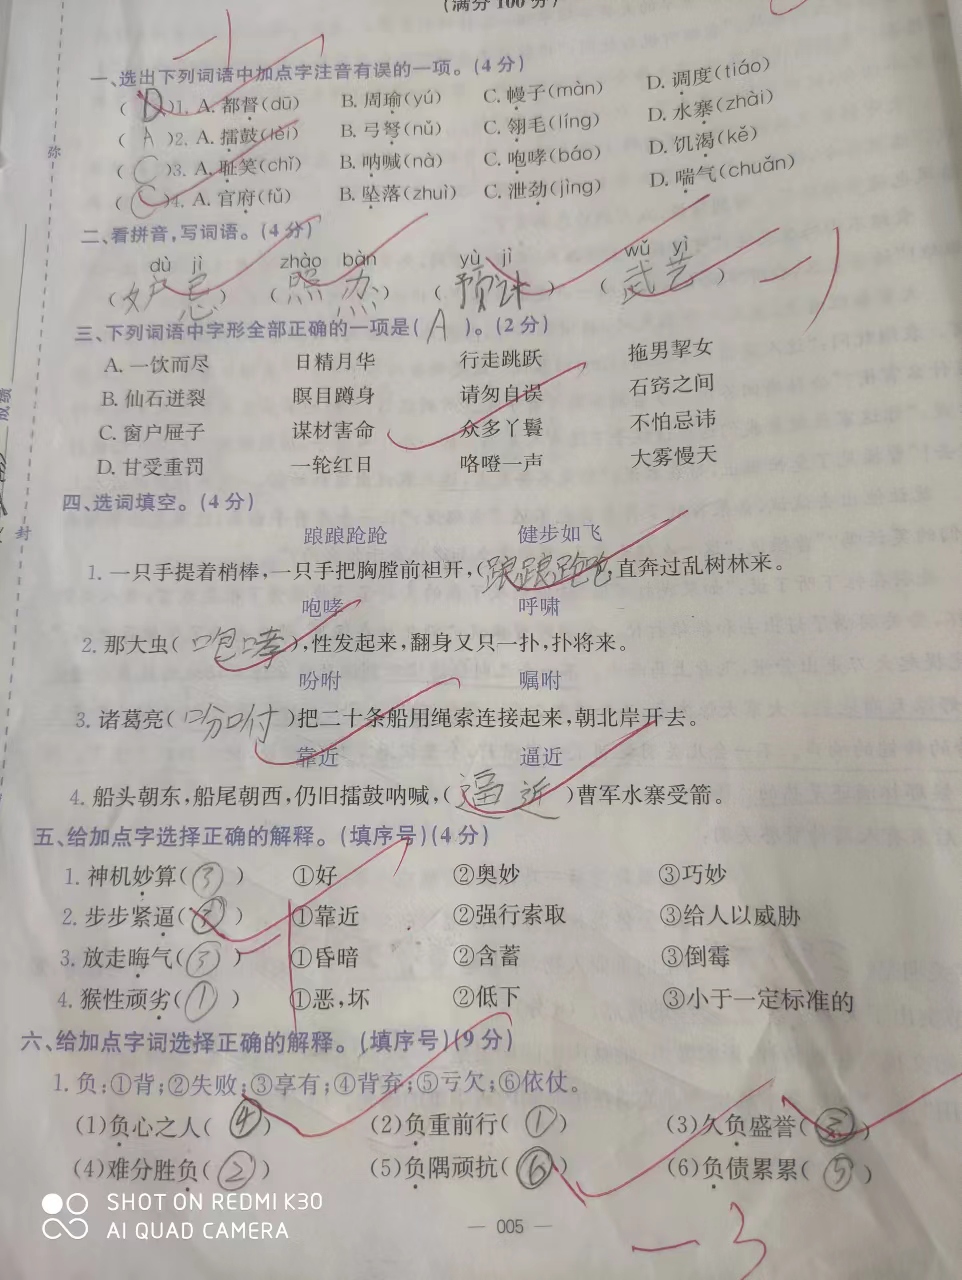 (满分100分)
一、选出下列词语中加点字注音有误的一项。(4分)
(D)1. A. 都督(dū) B. 周瑜(yú) C. 幔子(màn) D. 调度(tiáo)
(A)2. A. 擂鼓(lèi) B. 弓弩(nǔ) C. 翎毛(líng) D. 水寨(zhài)
(C)3. A. 耻笑(chǐ) B. 呐喊(nà) C. 咆哮(báo) D. 饥渴(kě)
(C)4. A. 官府(fǔ) B. 坠落(zhuì) C. 泄劲(jìng) D. 喘气(chuǎn)
二、看拼音,写词语。(4分)
dù jì zhào bàn yù jì wǔ yì
(妒忌) (照办) (预计) (武艺)
三、下列词语中字形全部正确的一项是(A)。(2分)
A. 一饮而尽 日精月华 行走跳跃 拖男挈女
B. 仙石迸裂 瞑目蹲身 请匆自误 石窍之间
C. 窗户屉子 谋材害命 众多丫鬟 不怕忌讳
D. 甘受重罚 一轮红日 咯噔一声 大雾慢天
四、选词填空。(4分)
踉踉跄跄 健步如飞
1. 一只手提着梢棒,一只手把胸膛前袒开,(踉踉跄跄)直奔过乱树林来。
咆哮 呼啸
2. 那大虫(咆哮),性发起来,翻身又只一扑,扑将来。
吩咐 嘱咐
3. 诸葛亮(吩咐)把二十条船用绳索连接起来,朝北岸开去。
靠近 逼近
4. 船头朝东,船尾朝西,仍旧擂鼓呐喊,(逼近)曹军水寨受箭。
五、给加点字选择正确的解释。(填序号)(4分)
1. 神机妙算(③) ①好 ②奥妙 ③巧妙
2. 步步紧逼( ) ①靠近 ②强行索取 ③给人以威胁
3. 放走晦气(③) ①昏暗 ②含蓄 ③倒霉
4. 猴性顽劣(①) ①恶,坏 ②低下 ③小于一定标准的
六、给加点字词选择正确的解释。(填序号)(9分)
1. 负:①背;②失败;③享有;④背弃;⑤亏欠;⑥依仗。
(1)负心之人(④) (2)负重前行(①) (3)久负盛誉( )
(4)难分胜负(②) (5)负隅顽抗(⑥) (6)负债累累(⑤)
— 005 —
-3
SHOT ON REDMI K30
AI QUAD CAMERA
弥
封
成绩
-1
-1